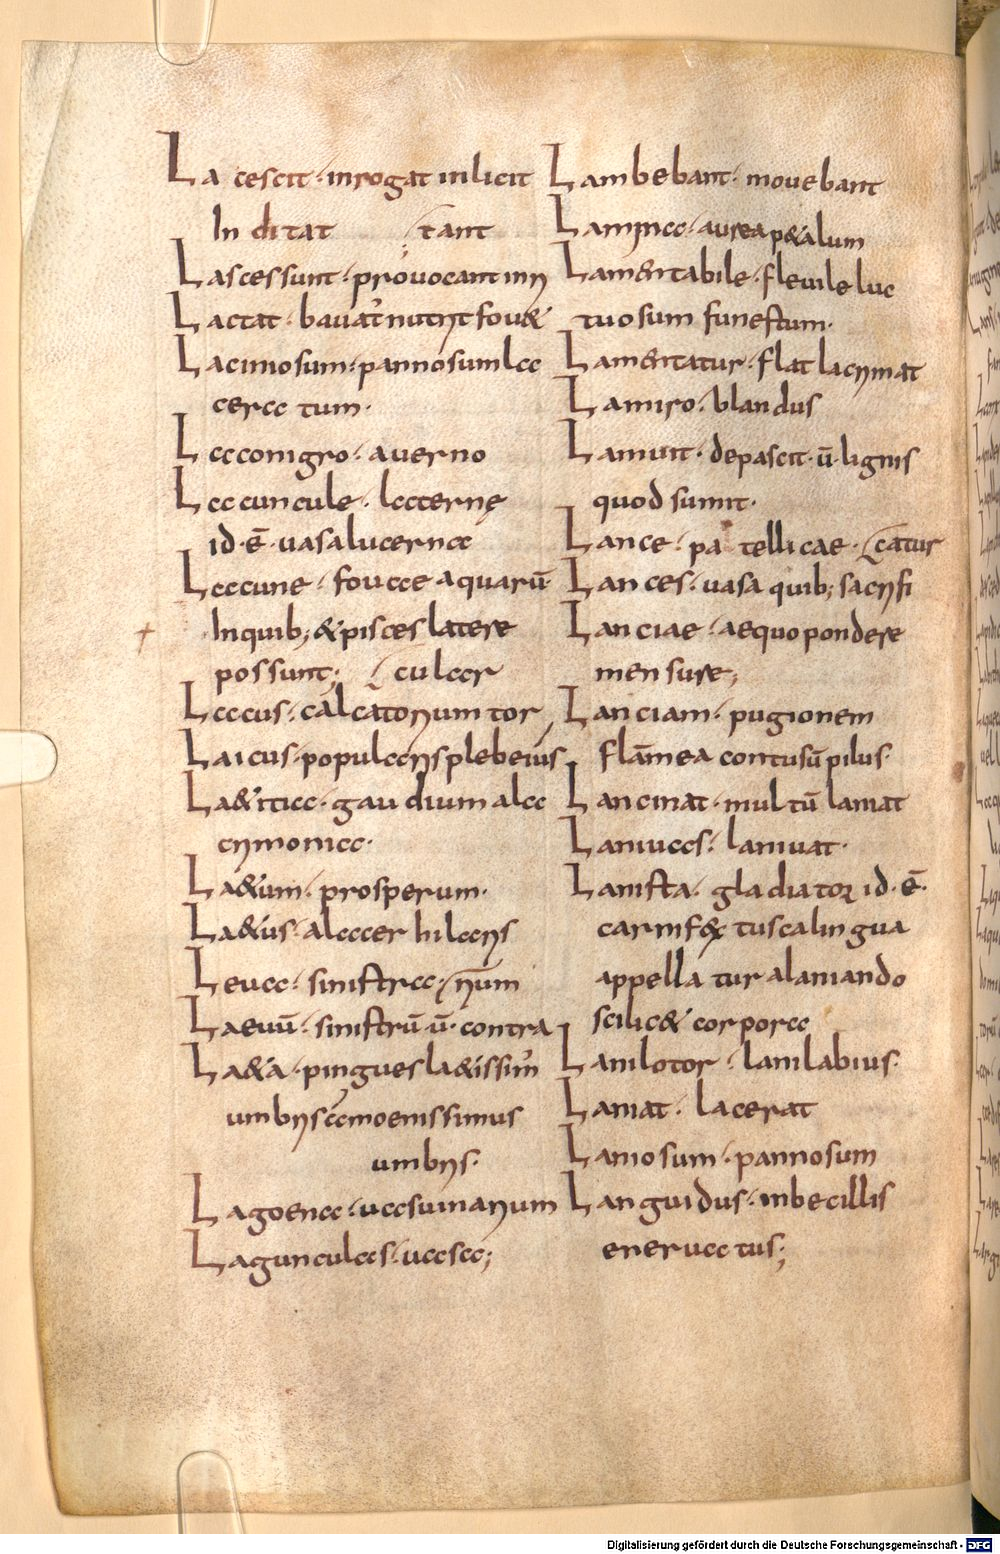 La cescit · inrogat inlicit
In ditat tant
Lascessunt · provocant inri
Lactat · bauat nutrit fou&
Lacinosum · pannosum la
cera tum ·
Laconigro · auerno
Lacuncule · lacternę
id · ē · uasalucernae
Lacune · foucae aquarū
Inquib; &pisces latere
possunt; culcar
Lacus · calcatorium tor
Laicus · popularis plebeius
La&itia · gaudium alac
crimonia ·
La&um · prosperum ·
La&us · alacer hilaris
Leua · sinistra · rium
Laeuū · sinistrū ū · contra
La&a · pingues la&issim
umbris amoenissimus
umbris ·
Lagoena · uasuinarium
Lagunculas · uasa;
Lambebant · mouebant
Lamina · aurea p&alum
Lam&ntabile · flebile luc
tuosum funestum ·
Lam&ntatur · flat lacrimat
Lamiro · blandus
Lamuit · depascit · ū · lignis
quod sumit ·
Lance · pa tellicae · catur
Lances · uasa quib; sacrifi
Lanciae · aequo pondere
mensure;
Lanciam · pugionem
flāmea contusū pilus ·
Lancinat · multū laniat
Laniuas · laniuat ·
Lanista · gladiator id · ē ·
carnif& tusca lingua
appella tur alaniando
scilic& corpora
Lanilotor · lanilabius ·
Laniat · lacerat
Lanosum · pannosum
Languidus · inbecillis
eneruatus;
Digitalisierung gefördert durch die Deutsche Forschungsgemeinschaft - DFG